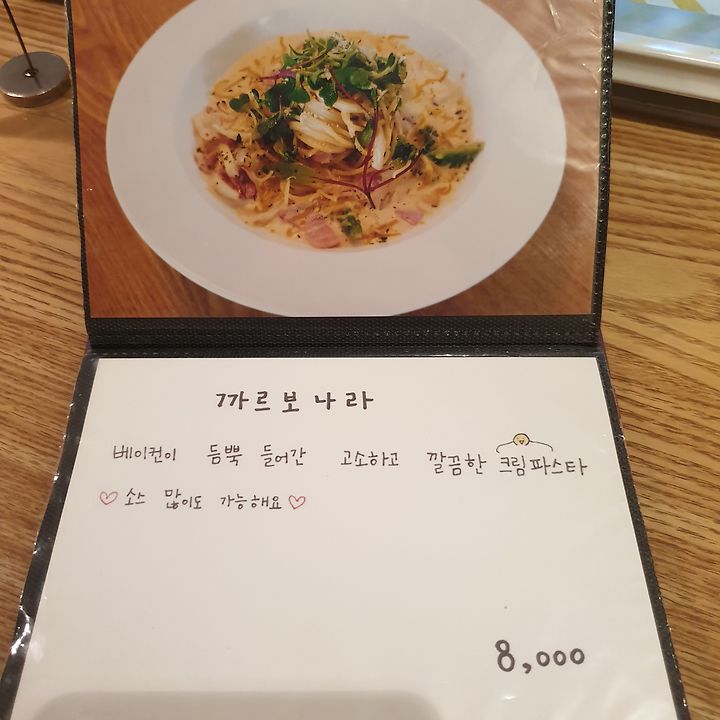 까르보나라
베이컨이 듬뿍 들어간 고소하고 깔끔한 크림파스타
소스 많이도 가능해요
8,000